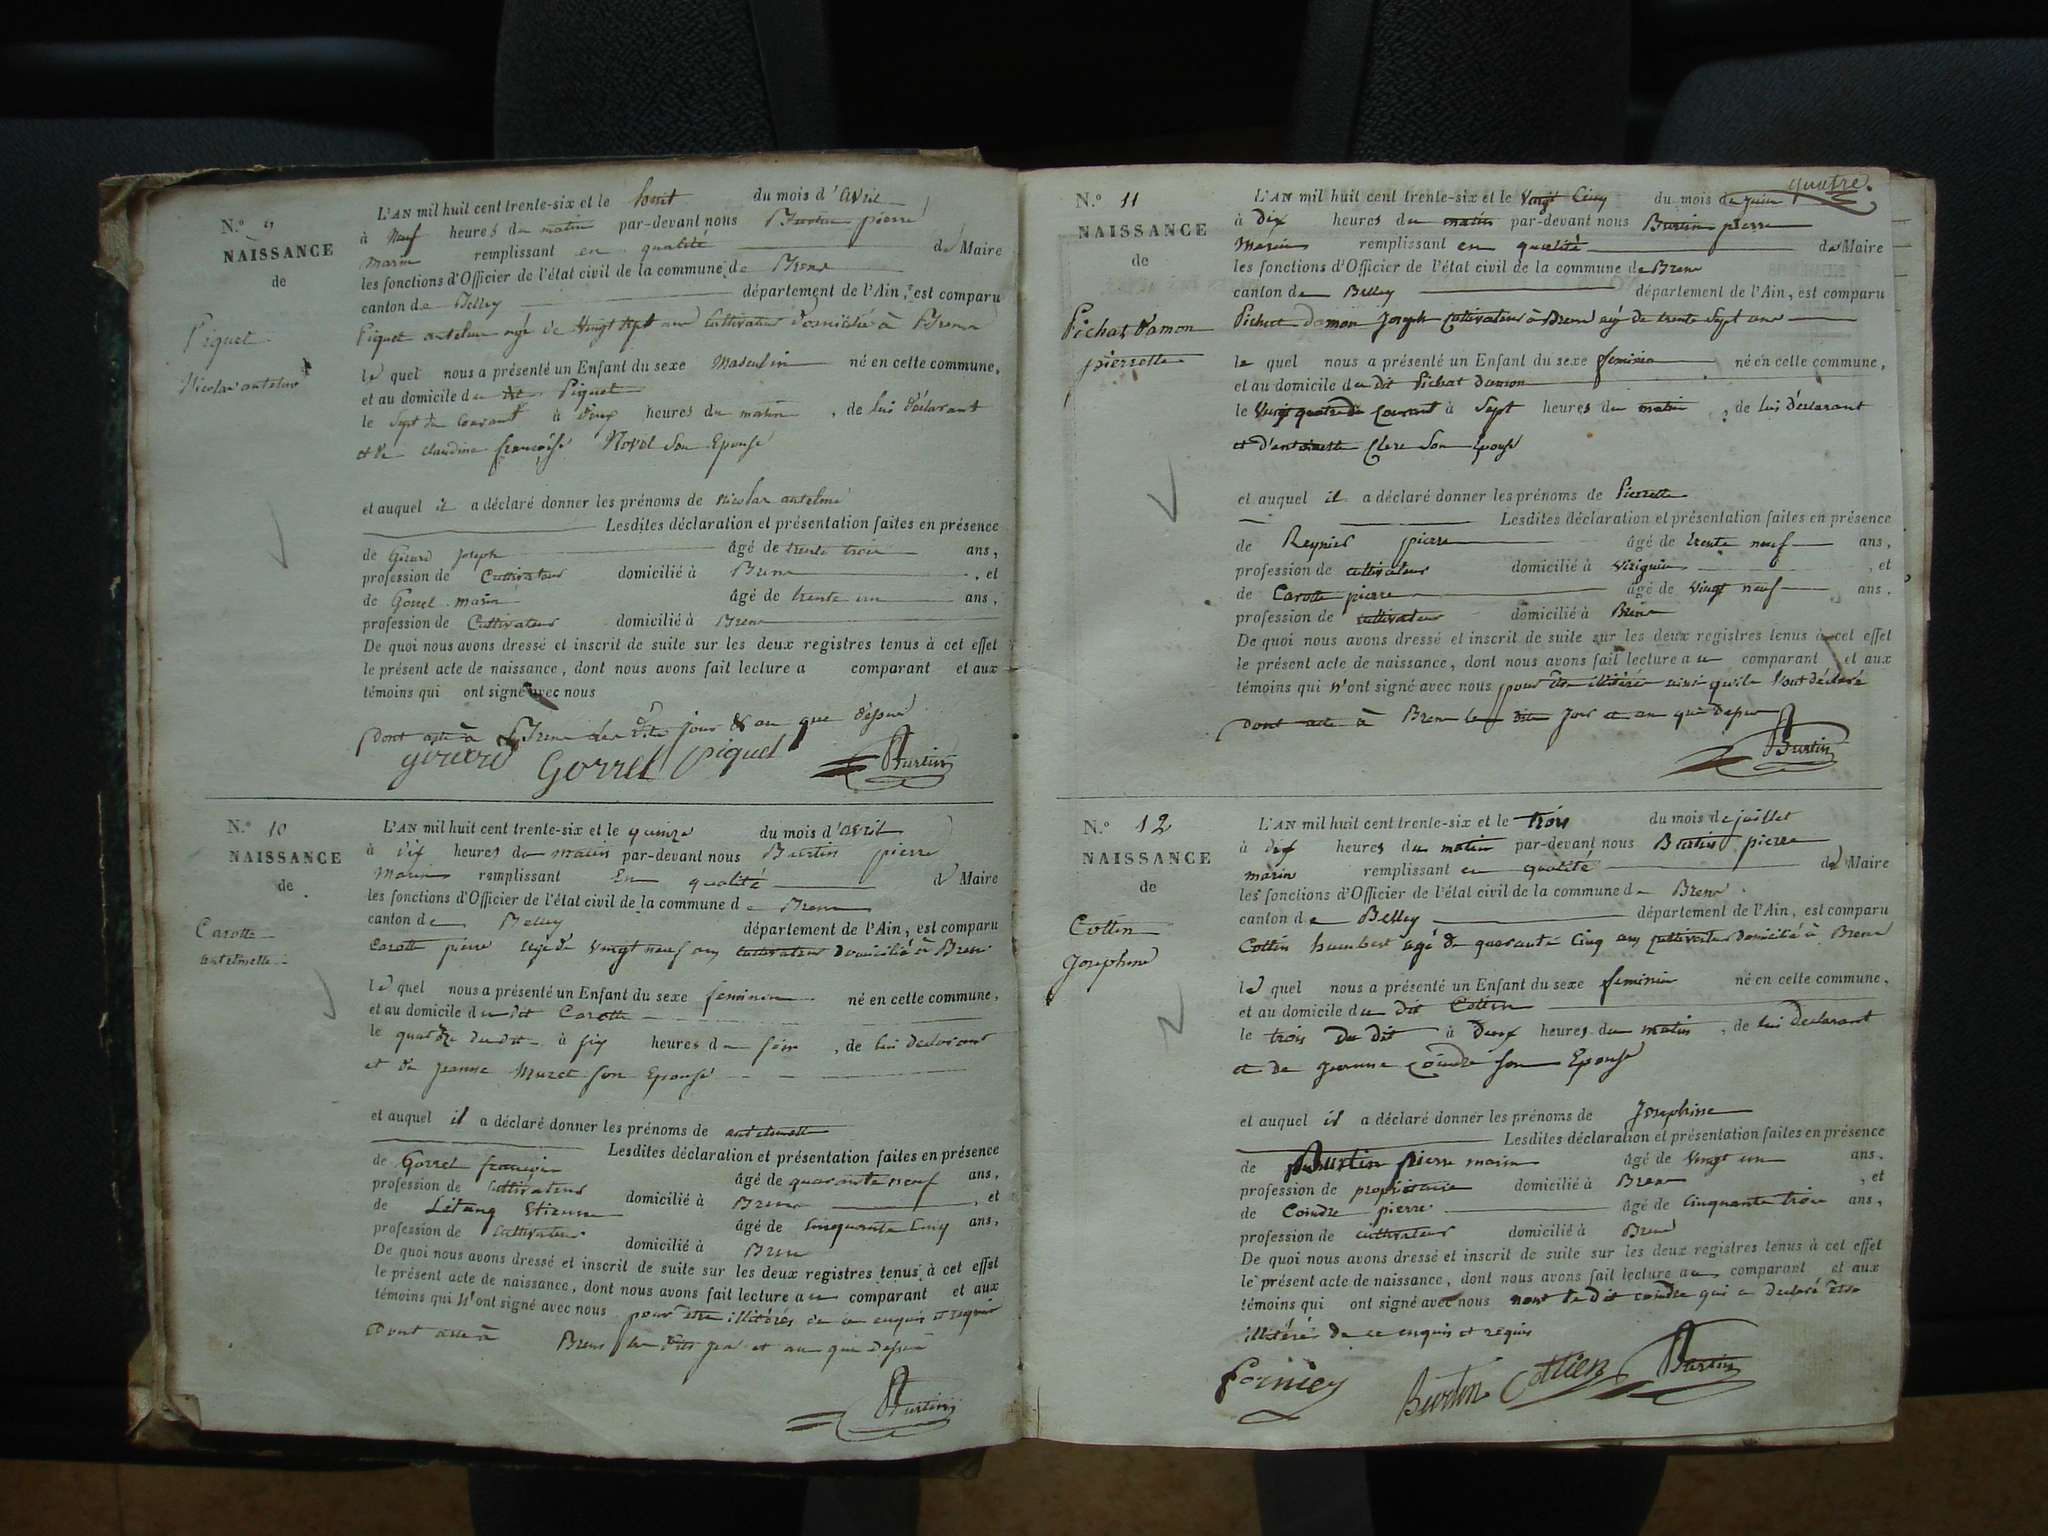 N.º 9
NAISSANCE
de
Piquet
Nicolas antelme
L'AN mil huit cent trente-six et le huit du mois d'avril
à neuf heures du matin par-devant nous Burtin pierre
marin remplissant en qualité de Maire
les fonctions d'Officier de l'état civil de la commune de Brens
canton de Belley département de l'Ain, est comparu
Piquet antelme agé de vingt sept ans Cultivateur domicilié à Brens
le quel nous a présenté un Enfant du sexe Masculin né en cette commune,
et au domicile du dit Piquet
le sept du courant à deux heures du matin, de lui déclarant
et de claudine françoise Novel son Epouse
et auquel il a déclaré donner les prénoms de Nicolas antelme
Lesdites déclaration et présentation faites en présence
de Girard joseph âgé de trente trois ans,
profession de Cultivateur domicilié à Brens, et
de Gorrel marin âgé de trente un ans,
profession de Cultivateur domicilié à Brens
De quoi nous avons dressé et inscrit de suite sur les deux registres tenus à cet effet
le présent acte de naissance, dont nous avons fait lecture a comparant et aux
témoins qui ont signé avec nous
dont acte à Brens les dits jour et an que dessus
girard Gorrel piquet Burtin
N.º 10
NAISSANCE
de
Carotte
antelmette
L'AN mil huit cent trente-six et le quinze du mois d'avril
à dix heures du matin par-devant nous Burtin pierre
Marin remplissant En qualité de Maire
les fonctions d'Officier de l'état civil de la commune de Brens
canton de Belley département de l'Ain, est comparu
Carotte pierre agé de vingt neuf ans cultivateur domicilié à Brens
le quel nous a présenté un Enfant du sexe feminin né en cette commune,
et au domicile du dit Carotte
le quatorze du dit à six heures du soir, de lui déclarant
et de jeanne Muret son Epouse
et auquel il a déclaré donner les prénoms de antelmette
Lesdites déclaration et présentation faites en présence
de Gorrel françois âgé de quarante neuf ans,
profession de cultivateur domicilié à Brens, et
de Letang Etienne âgé de cinquante cinq ans,
profession de cultivateur domicilié à Brens
De quoi nous avons dressé et inscrit de suite sur les deux registres tenus à cet effet
le présent acte de naissance, dont nous avons fait lecture au comparant et aux
témoins qui n'ont signé avec nous pour être illitérés de ce enquis et requis
Dont acte à Brens les dits jour et an que dessus
Burtin
quatre.
N.º 11
NAISSANCE
de
Pichat Damon
pierrette
L'AN mil huit cent trente-six et le vingt cinq du mois de juin
à dix heures du matin par-devant nous Burtin pierre
Marin remplissant en qualité de Maire
les fonctions d'Officier de l'état civil de la commune de Brens
canton de Belley département de l'Ain, est comparu
Pichat damon Joseph Cultivateur à Brens agé de trente sept ans
le quel nous a présenté un Enfant du sexe feminin né en cette commune,
et au domicile du dit Pichat damon
le vingt quatre du courant à sept heures du matin, de lui déclarant
et d'antoinette Clere son épouse
et auquel il a déclaré donner les prénoms de Pierrette
Lesdites déclaration et présentation faites en présence
de Reynier pierre âgé de trente neuf ans,
profession de cultivateur domicilié à virignin, et
de Carotte pierre âgé de vingt neuf ans,
profession de cultivateur domicilié à Brens
De quoi nous avons dressé et inscrit de suite sur les deux registres tenus à cet effet
le présent acte de naissance, dont nous avons fait lecture au comparant et aux
témoins qui n'ont signé avec nous pour être illitérés ainsi qu'ils l'ont déclaré
dont acte à Brens les dits jour et an que dessus
Burtin
N.º 12
NAISSANCE
de
Cottin
Josephine
L'AN mil huit cent trente-six et le trois du mois de juillet
à dix heures du matin par-devant nous Burtin pierre
marin remplissant en qualité de Maire
les fonctions d'Officier de l'état civil de la commune de Brens
canton de Belley département de l'Ain, est comparu
Cottin humbert agé de quarante cinq ans cultivateur domicilié à Brens
le quel nous a présenté un Enfant du sexe feminin né en cette commune,
et au domicile du dit Cottin
le trois du dit à deux heures du matin, de lui déclarant
et de jeanne coindre son Epouse
et auquel il a déclaré donner les prénoms de Josephine
Lesdites déclaration et présentation faites en présence
de Burtin pierre marin âgé de vingt un ans,
profession de propriétaire domicilié à Brens, et
de Coindre pierre âgé de cinquante trois ans,
profession de cultivateur domicilié à Brens
De quoi nous avons dressé et inscrit de suite sur les deux registres tenus à cet effet
le présent acte de naissance, dont nous avons fait lecture au comparant et aux
témoins qui ont signé avec nous non le dit coindre qui a déclaré être
illitérés de ce enquis et requis
Burtin Cottien Burtin